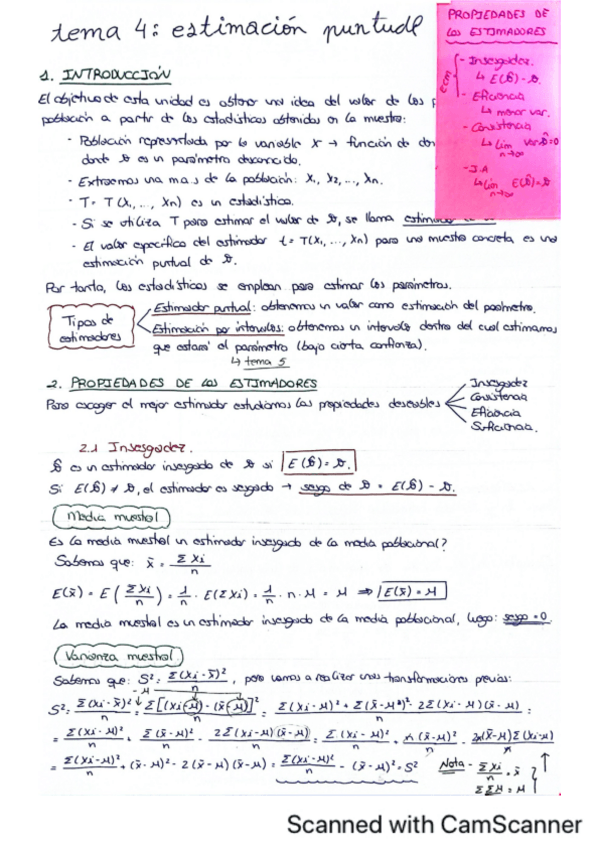 tema 4: estimación puntual
PROPIEDADES DE
LOS ESTIMADORES
- Insesgadez.
↳ E(θ̂) - θ.
- Eficiencia
↳ menor var.
- Consistencia
↳ lim var θ̂ = 0
n→∞
- I.A
↳ lim E(θ̂) = θ
n→∞
ecm
1. INTRODUCCIÓN
El objetivo de esta unidad es obtener una idea del valor de los p
población a partir de los estadísticos obtenidos en la muestra:
- Población representada por la variable X → función de
donde θ es un parámetro desconocido.
- Extraemos una m.a.s de la población: X₁, X₂, ..., Xn.
- T = T(X₁, ..., Xn) es un estadístico.
- Si se utiliza T para estimar el valor de θ, se llama
- El valor específico del estimador t = T(X₁, ..., Xn) para una muestra concreta, es una
estimación puntual de θ.
Por tanto, los estadísticos se emplean para estimar los parámetros.
Tipos de
estimadores
Estimador puntual: obtenemos un valor como estimación del parámetro.
Estimación por intervalos: obtenemos un intervalo dentro del cual estimamos
que estará el parámetro (bajo cierta confianza).
↳ tema 5
2. PROPIEDADES DE LOS ESTIMADORES
Para escoger el mejor estimador estudiamos las propiedades deseables
Insesgadez
Consistencia
Eficiencia
Suficiencia.
2.1 Insesgadez.
θ̂ es un estimador insesgado de θ si E(θ̂) = θ.
Si E(θ̂) ≠ θ, el estimador es sesgado → sesgo de θ = E(θ̂) - θ.
Media muestral
Es la media muestral un estimador insesgado de la media poblacional?
Sabemos que: x̄ = Σxi / n
E(x̄) = E(Σxi / n) = 1/n · E(Σxi) = 1/n · n · μ = μ ⇒ E(x̄) = μ
La media muestral es un estimador insesgado de la media poblacional, luego: sesgo = 0.
Varianza muestral
Sabemos que: S² = Σ(xi - x̄)² / n, pero vamos a realizar unas transformaciones previas:
- μ
S² = Σ(xi - x̄)² / n = Σ[(xi - μ) - (x̄ - μ)]² / n = Σ(xi - μ)² + Σ(x̄ - μ)² - 2Σ(xi - μ)(x̄ - μ) / n =
= Σ(xi - μ)² / n + Σ(x̄ - μ)² / n - 2Σ(xi - μ)(x̄ - μ) / n = Σ(xi - μ)² / n + n(x̄ - μ)² / n - 2(x̄ - μ)Σ(xi - μ) / n
= Σ(xi - μ)² / n + (x̄ - μ)² - 2(x̄ - μ)(x̄ - μ) = Σ(xi - μ)² / n - (x̄ - μ)² = S²
Nota - Σxi / n = x̄
Scanned with CamScanner